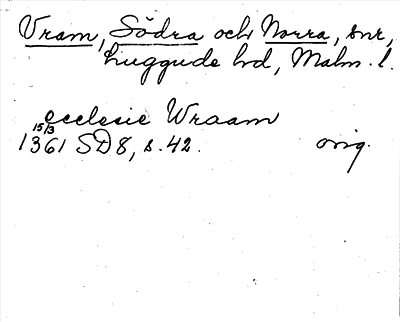 Vram, Södra och Norra, snr,
Luggude hd, Malm. l.
ecclesie Wraam
15/3
1361 SD 8, s. 42. orig.